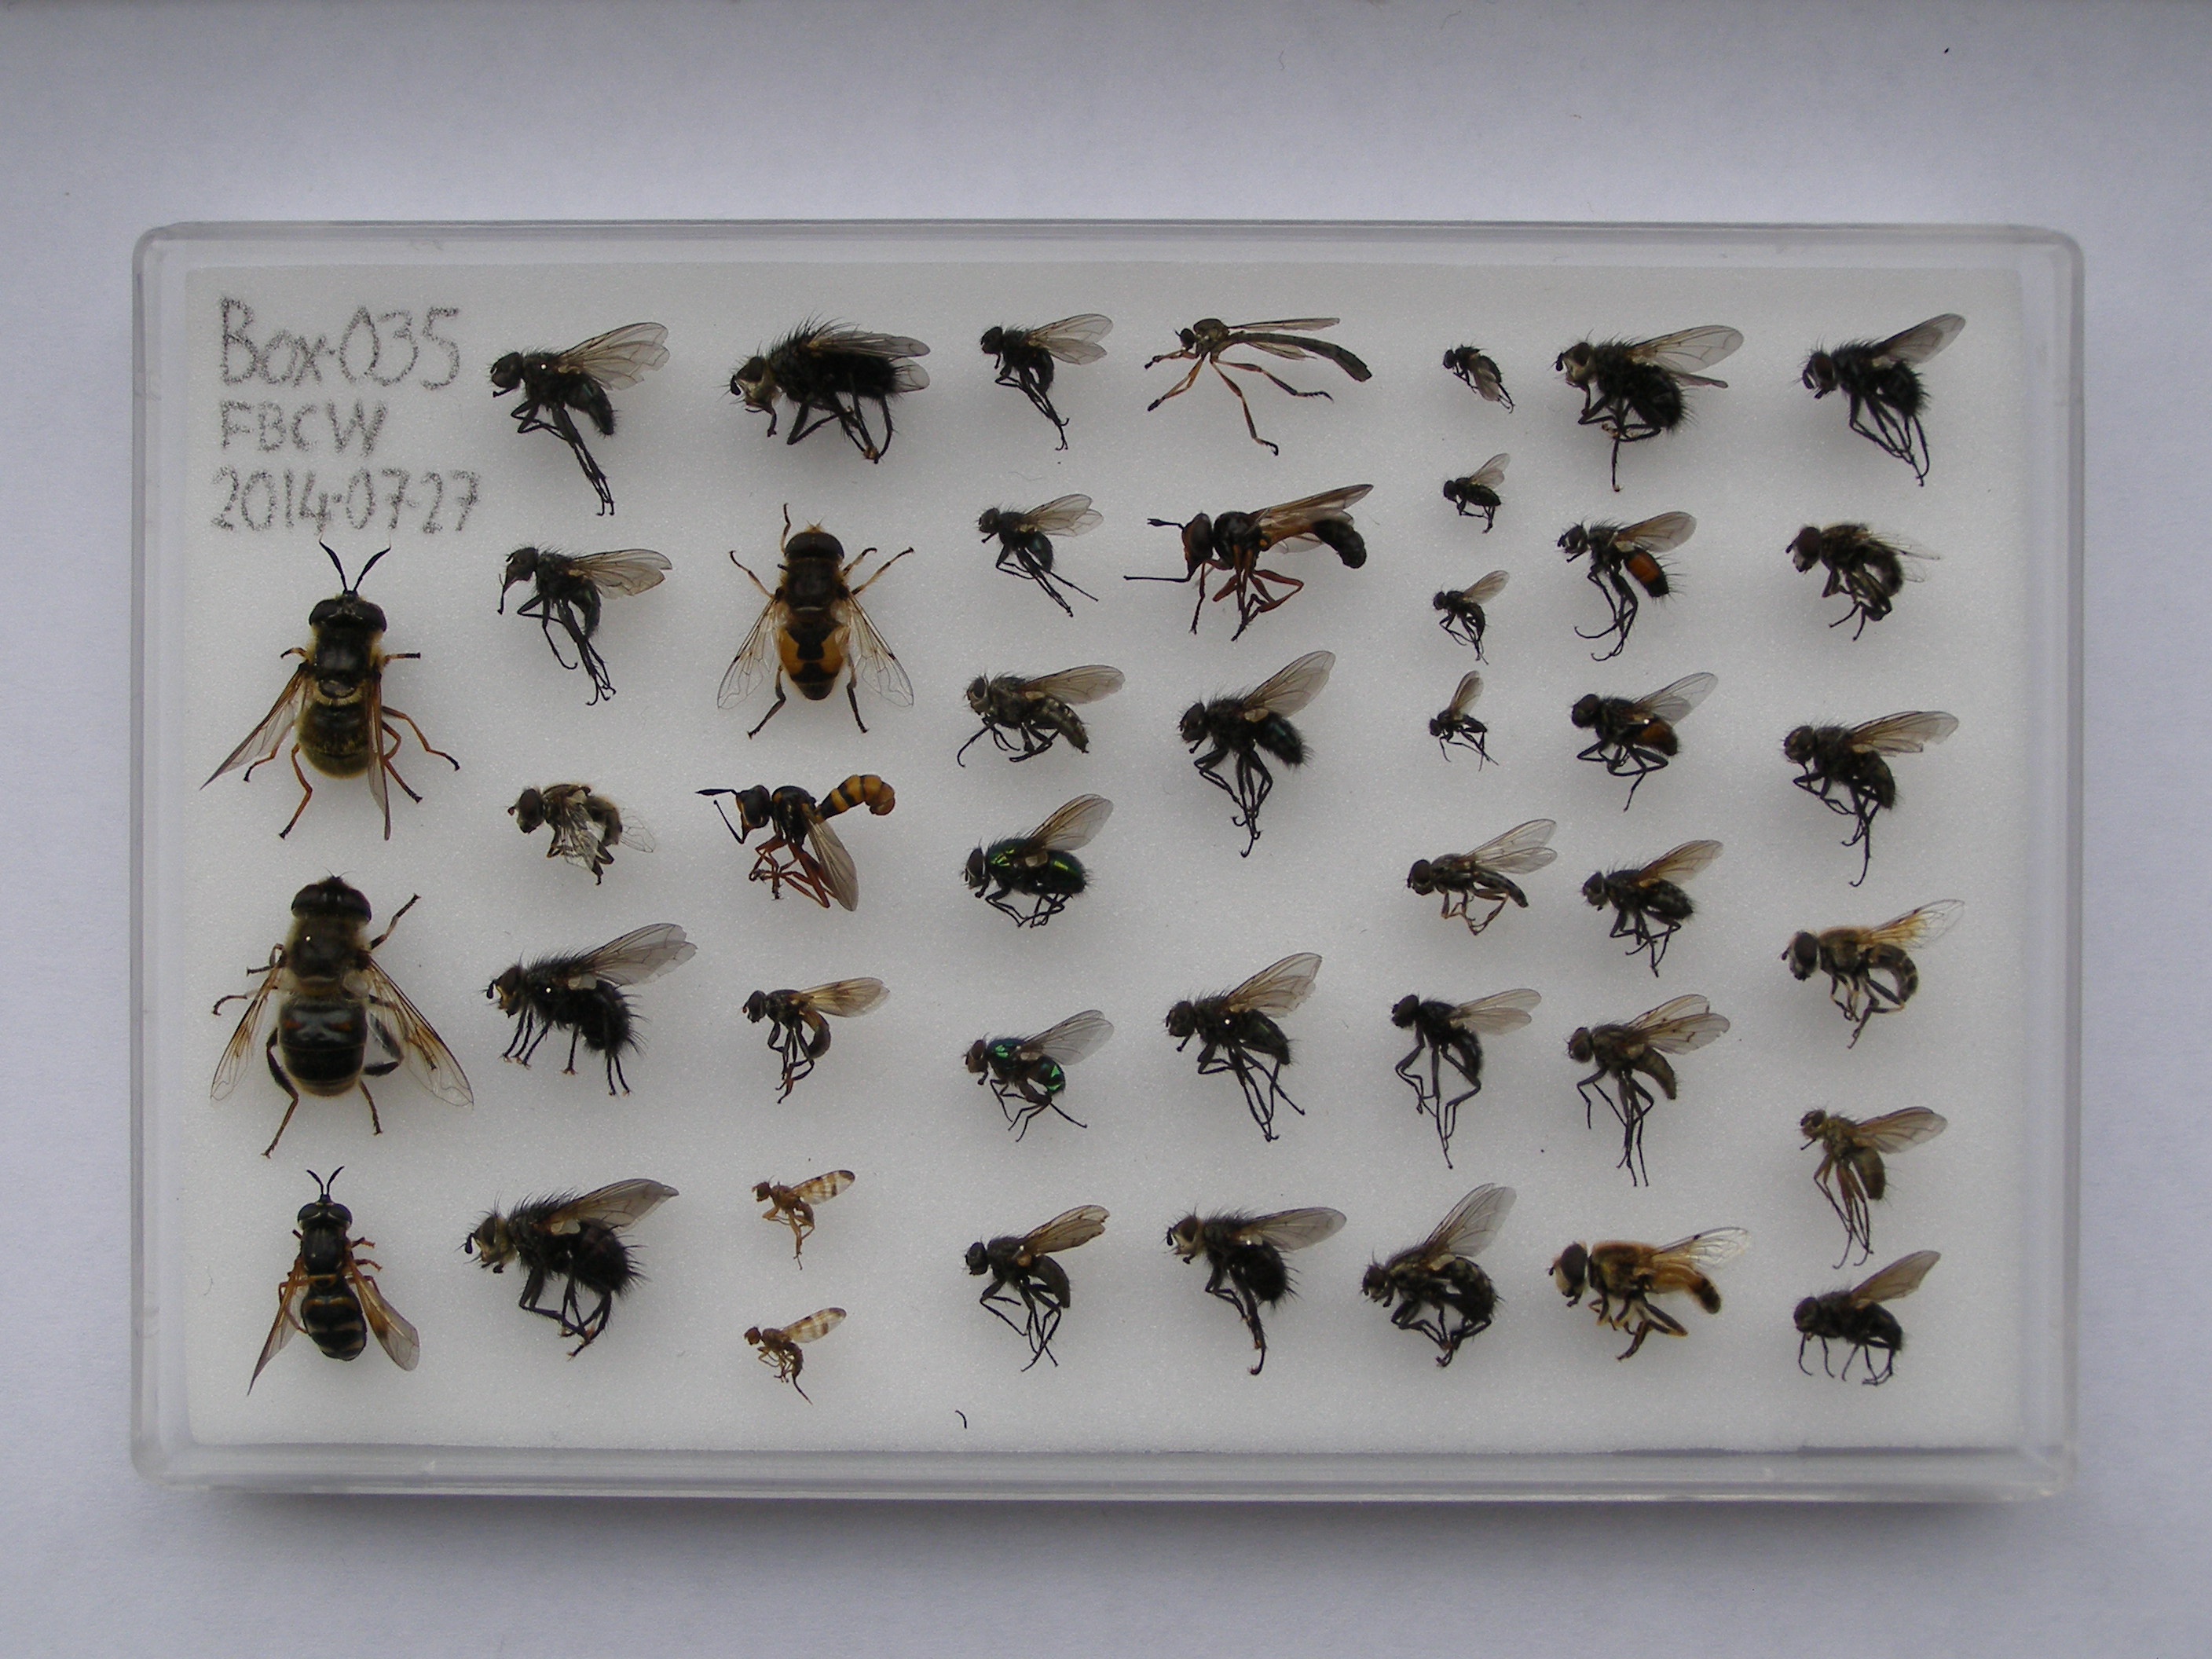 Box-035
FBCW
2014-07-27